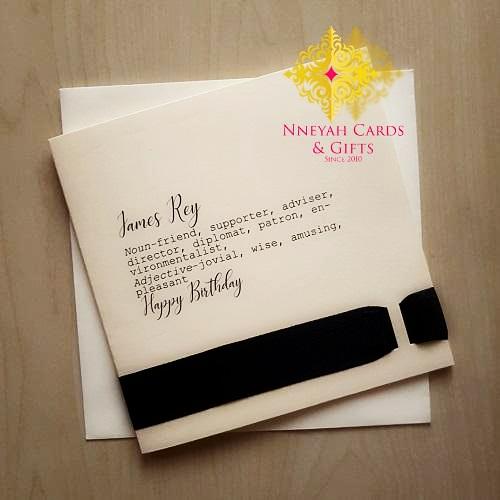 NNEYAH CARDS
& GIFTS
SINCE 2010
James Rey
Noun-friend, supporter, adviser,
director, diplomat, patron, en-
vironmentalist,
Adjective-jovial, wise, amusing,
pleasant
Happy Birthday